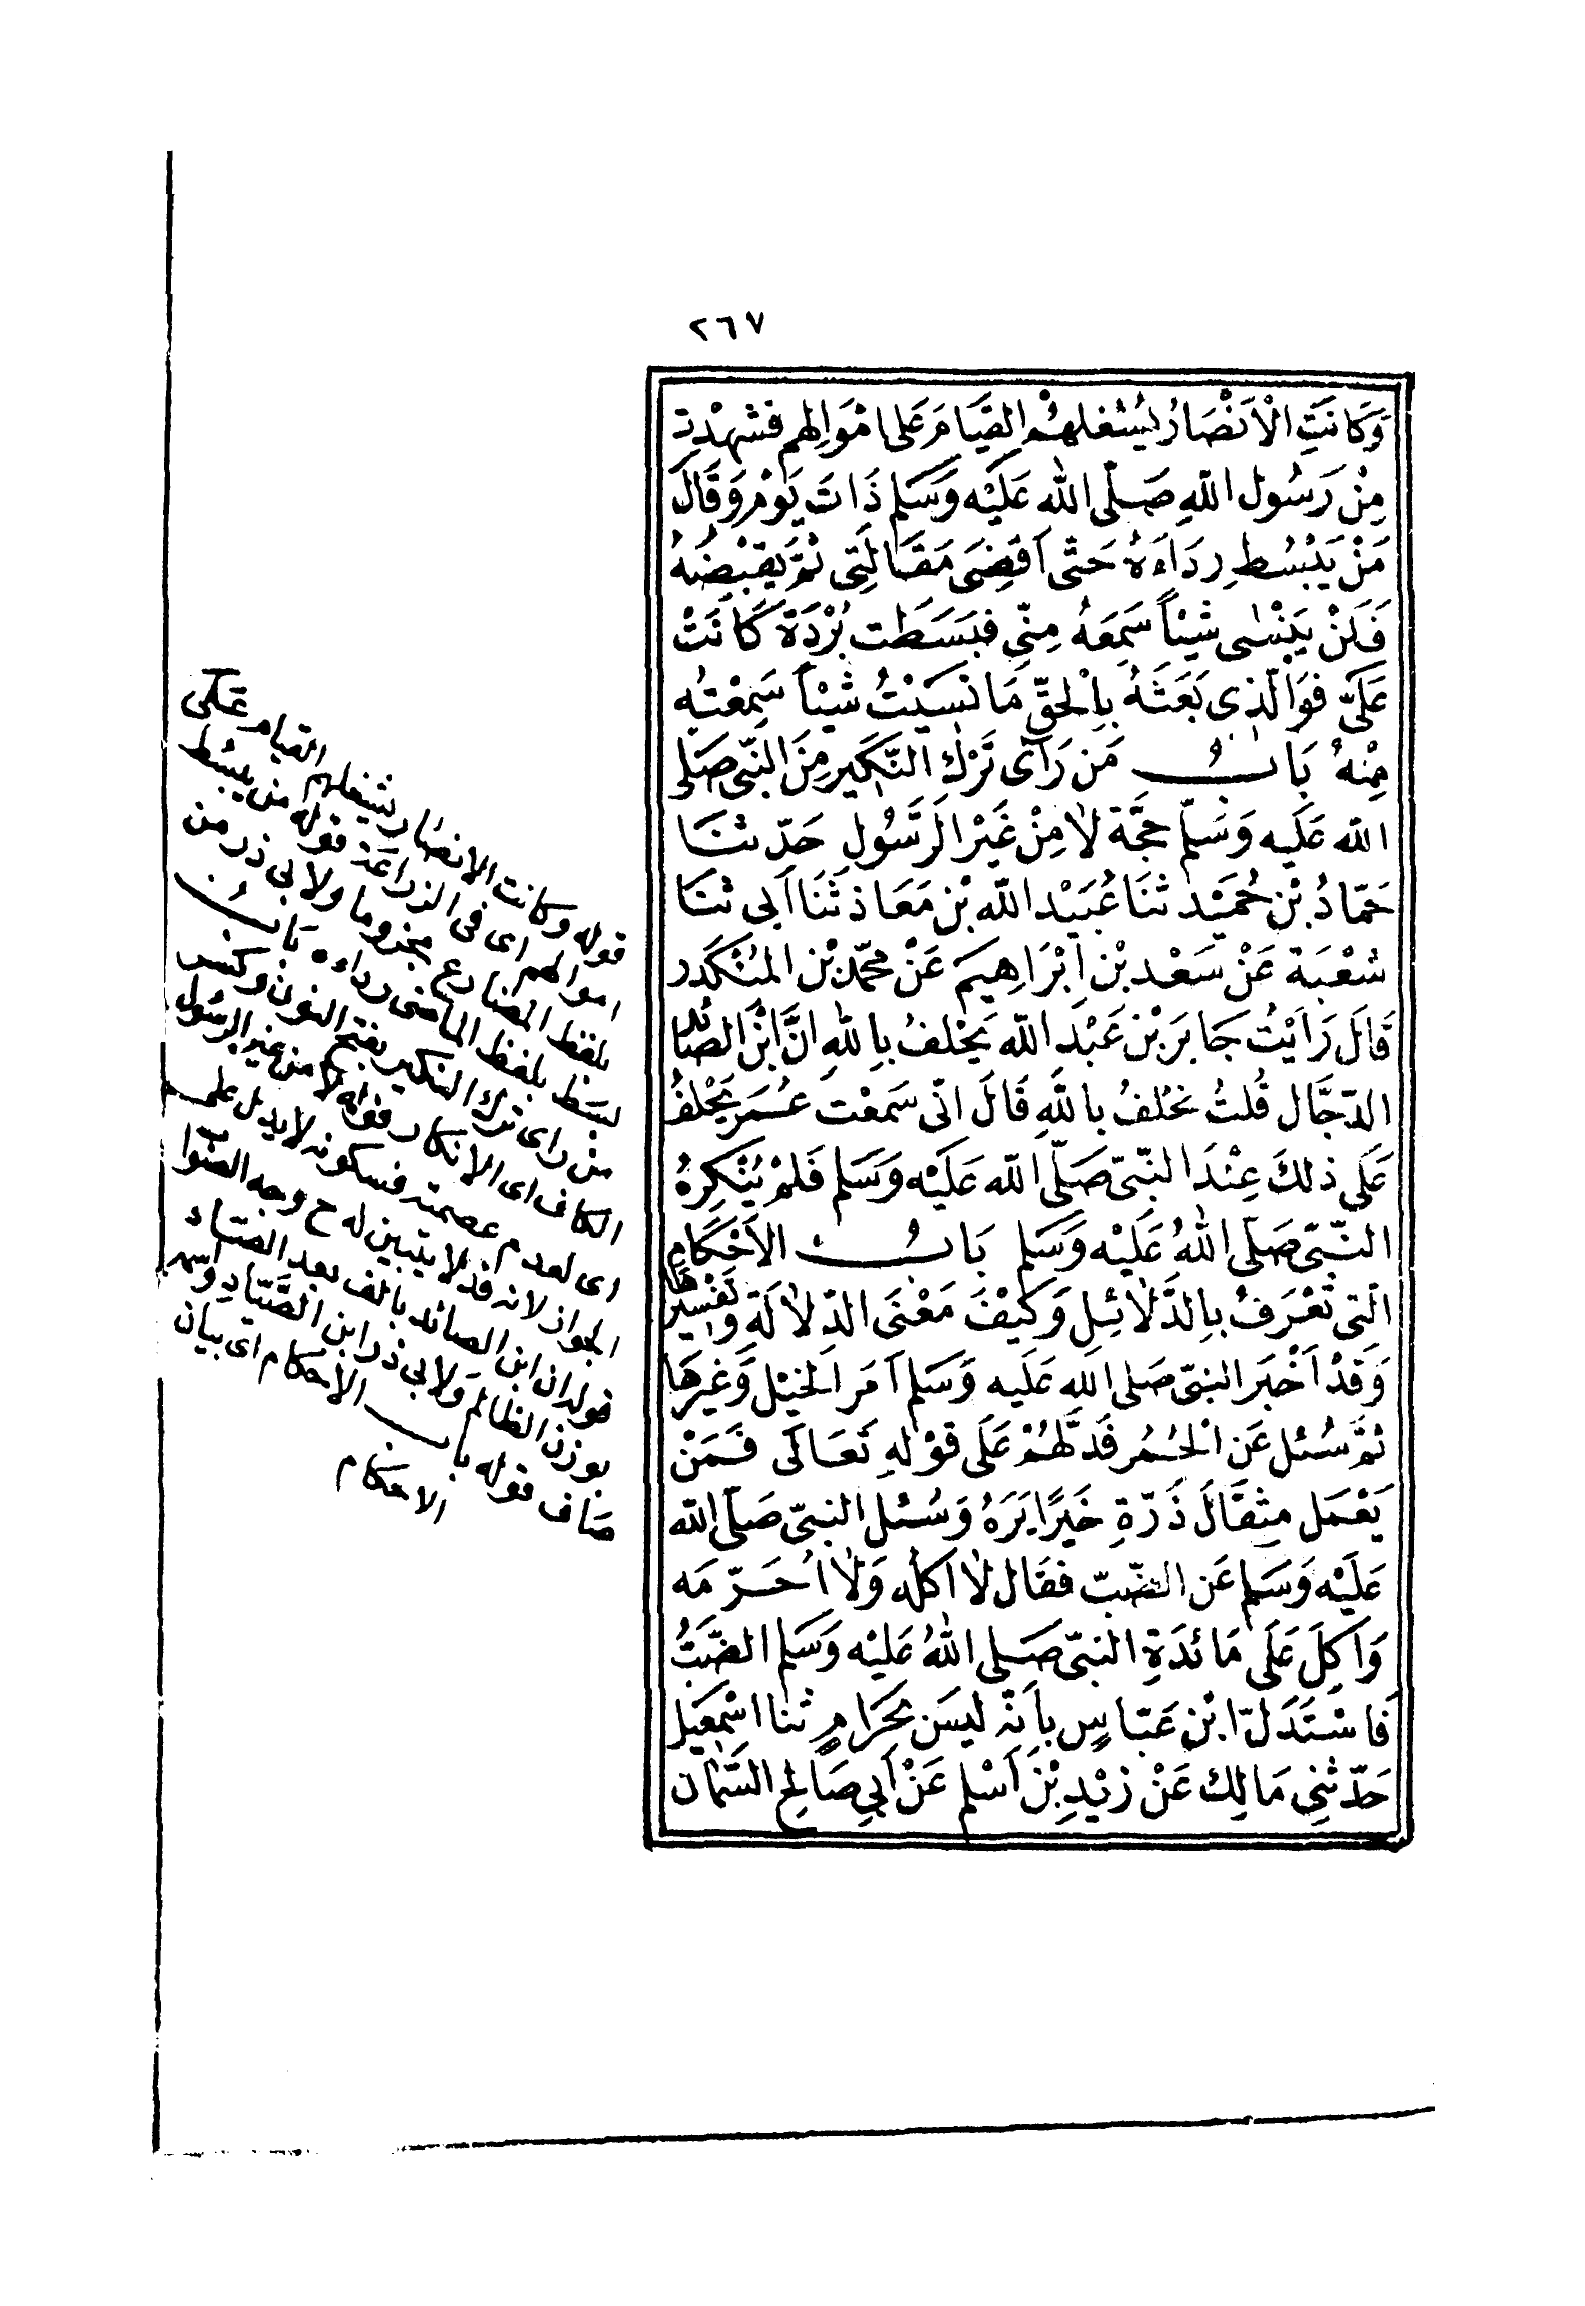 ٢٦٧
وَكَانَتِ الْاَنْصَارُ يَشْغلهُمْ القِيَامَ عَلَى امْوَالِهم فشهِدْت
مِنْ رَسُول اللّٰهِ صَلّى اللّٰه عَلَيْه وَسَلم ذَاتَ يَوْم وَقَالَ
مَنْ يَبْسُطِ رِدَاءَهُ حَتّى اَقضِىَ مَقَالَتِى ثمَّ يَقبْضِهُ
فَلَنْ يَنْسٰى شيْأً سَمِعَهُ مِنّى فبَسَطت بُرْدَةً كَانَتْ
عَلَىَّ فوَالّذِى بَعَثَهُ بِالْحقِّ مَا نسِيْتُ شيْأً سَمِعْته
مِنْهُ بَابُ مَن رَاَى تَرْكَ النّكَيرِ مِنَ النّبّى صَلى
اللّٰه عَلَيه وَسَلّم حجَّة لٰا مِنْ غَيْرِ الرَّسُولِ حَدّ ثنَا
حَمّادُ بْن حُمَيْد ثنَا عُبَيْد اللّٰه بْن مَعَاذ ثَنَا اَبى ثنَا
شعْبَة عَنْ سَعْد بْن اِبْرَاهِيمَ عَنْ مُحمّد بْن المُنْكَدر
قَالَ رَاَيْتُ جَابرَ بْن عَبْدَ اللّٰه يَحْلفُ بِاللّٰهِ انَّ ابْنَ الصّائد
الدّجَّال قُلتُ تحْلفُ باللّٰهِ قَالَ انّى سَمعْت عُمَرَ يَحْلفُ
عَلَى ذلكَ عِنْدَ النبّى صَلّى اللّٰه عَلَيْه وَسَلم فَلمْ يُنْكِرهُ
النّبّى صَلى اللّٰهُ عَلَيْه وَسَلم بَابُ الاَحْكَامِ
الَتى تعْرَفُ بِالدَّلٰائِلِ وَكَيْفَ مَعْنَى الدّلٰالَةِ وَتفْسِيرهَا
وَقدْ اَخْبَر النبّى صَلى اللّٰه عَلَيه وَسَلم اَمَر الخيْل وَغيْرهَا
ثمَّ سُئل عَن الْحُمُر فَدَلّهُمْ عَلَى قوْلهِ تَعَالَى فَمَنْ
يَعْمَل مِثقَالَ ذَرّةٍ خَيْرًا يَرَهُ وَسُئل النبىّ صَلّى اللّٰه
عَلَيْه وَسَلم عَن الضّبّ فقَال لٰا اكله وَلٰا اُحَرّمَه
وَاَكِلَ عَلَى مَائدَةِ النبّى صَلى اللّٰهُ عَليْه وَسَلم الضّبّ
فَاسْتَدَلّ ابْن عَبّاسٍ بِاَنّهُ ليسَ بحَرَامٍ ثنا اسْمعِيل
حَدّثنِى مَالِك عَنْ زيْدِ بْن اَسْلم عَنْ اَبِى صَالِح السَّمّان
قوله وكانت الانصار يشغلهم القيام عَلَى
اموالهم اى فى الزراعة قوله من يبسُط
بلفظ المضارع مجزوما ولابى ذر من
بسَط بلفظ الماضى رداءه بَابُ
من راى ترك النكير بفتح النون وكسر
الكاف اى الانكار قوله لا من غير الرسُول
اى لعدم عصمته فسكوته لا يدل على
الجواز لانه قد لا يتبين له ح وجه الصّواب
قوله ان ابن الصائد بالف بعد الصّاد
بوزن الظالم ولابى ذر ابن الصَّيّادِ واسمه
صَاف قوله باب الاحكام اى بيان
الاحكام